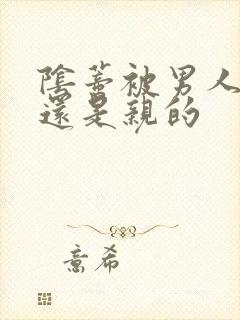 陰蒂被男人
還是親的
意希